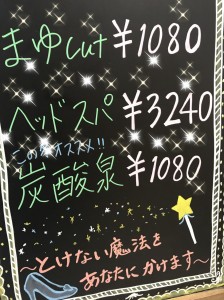 まゆcut ¥1080
ヘッドスパ ¥3240
この冬オススメ!!
炭酸泉 ¥1080
～とけない魔法を
あなたにかけます～